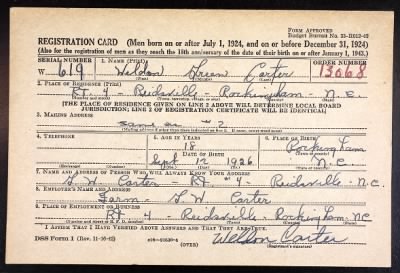 FORM APPROVED
Budget Bureau No. 33-R012-42
REGISTRATION CARD (Men born on or after July 1, 1924, and on or before December 31, 1924)
(Also for the registration of men as they reach the 18th anniversary of the date of their birth on or after January 1, 1943.)
SERIAL NUMBER 1. NAME (Print) ORDER NUMBER
W 619 Weldon Carter 13068
2. PLACE OF RESIDENCE (Print)
Rt. 4 - Reidsville - Rockingham - N.C.
[THE PLACE OF RESIDENCE GIVEN ON LINE 2 ABOVE WILL DETERMINE LOCAL BOARD
JURISDICTION; LINE 2 OF REGISTRATION CERTIFICATE WILL BE IDENTICAL]
3. MAILING ADDRESS
Same as #2
4. TELEPHONE 5. AGE IN YEARS 6. PLACE OF BIRTH
18 Rockingham
DATE OF BIRTH
Sept 12 1926 N.C.
7. NAME AND ADDRESS OF PERSON WHO WILL ALWAYS KNOW YOUR ADDRESS
W. Carter - Rt #4 - Reidsville - N.C.
8. EMPLOYER'S NAME AND ADDRESS
Farm - W Carter
9. PLACE OF EMPLOYMENT OR BUSINESS
Rt 4 - Reidsville - Rockingham NC
I AFFIRM THAT I HAVE VERIFIED ABOVE ANSWERS AND THAT THEY ARE TRUE.
DSS Form 1 (Rev. 11-16-42) (OVER) Weldon Carter